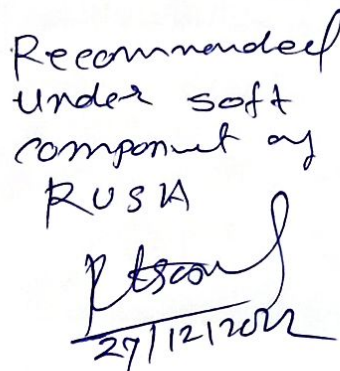 Recommended
under soft
component of
RUSA
27/12/2022